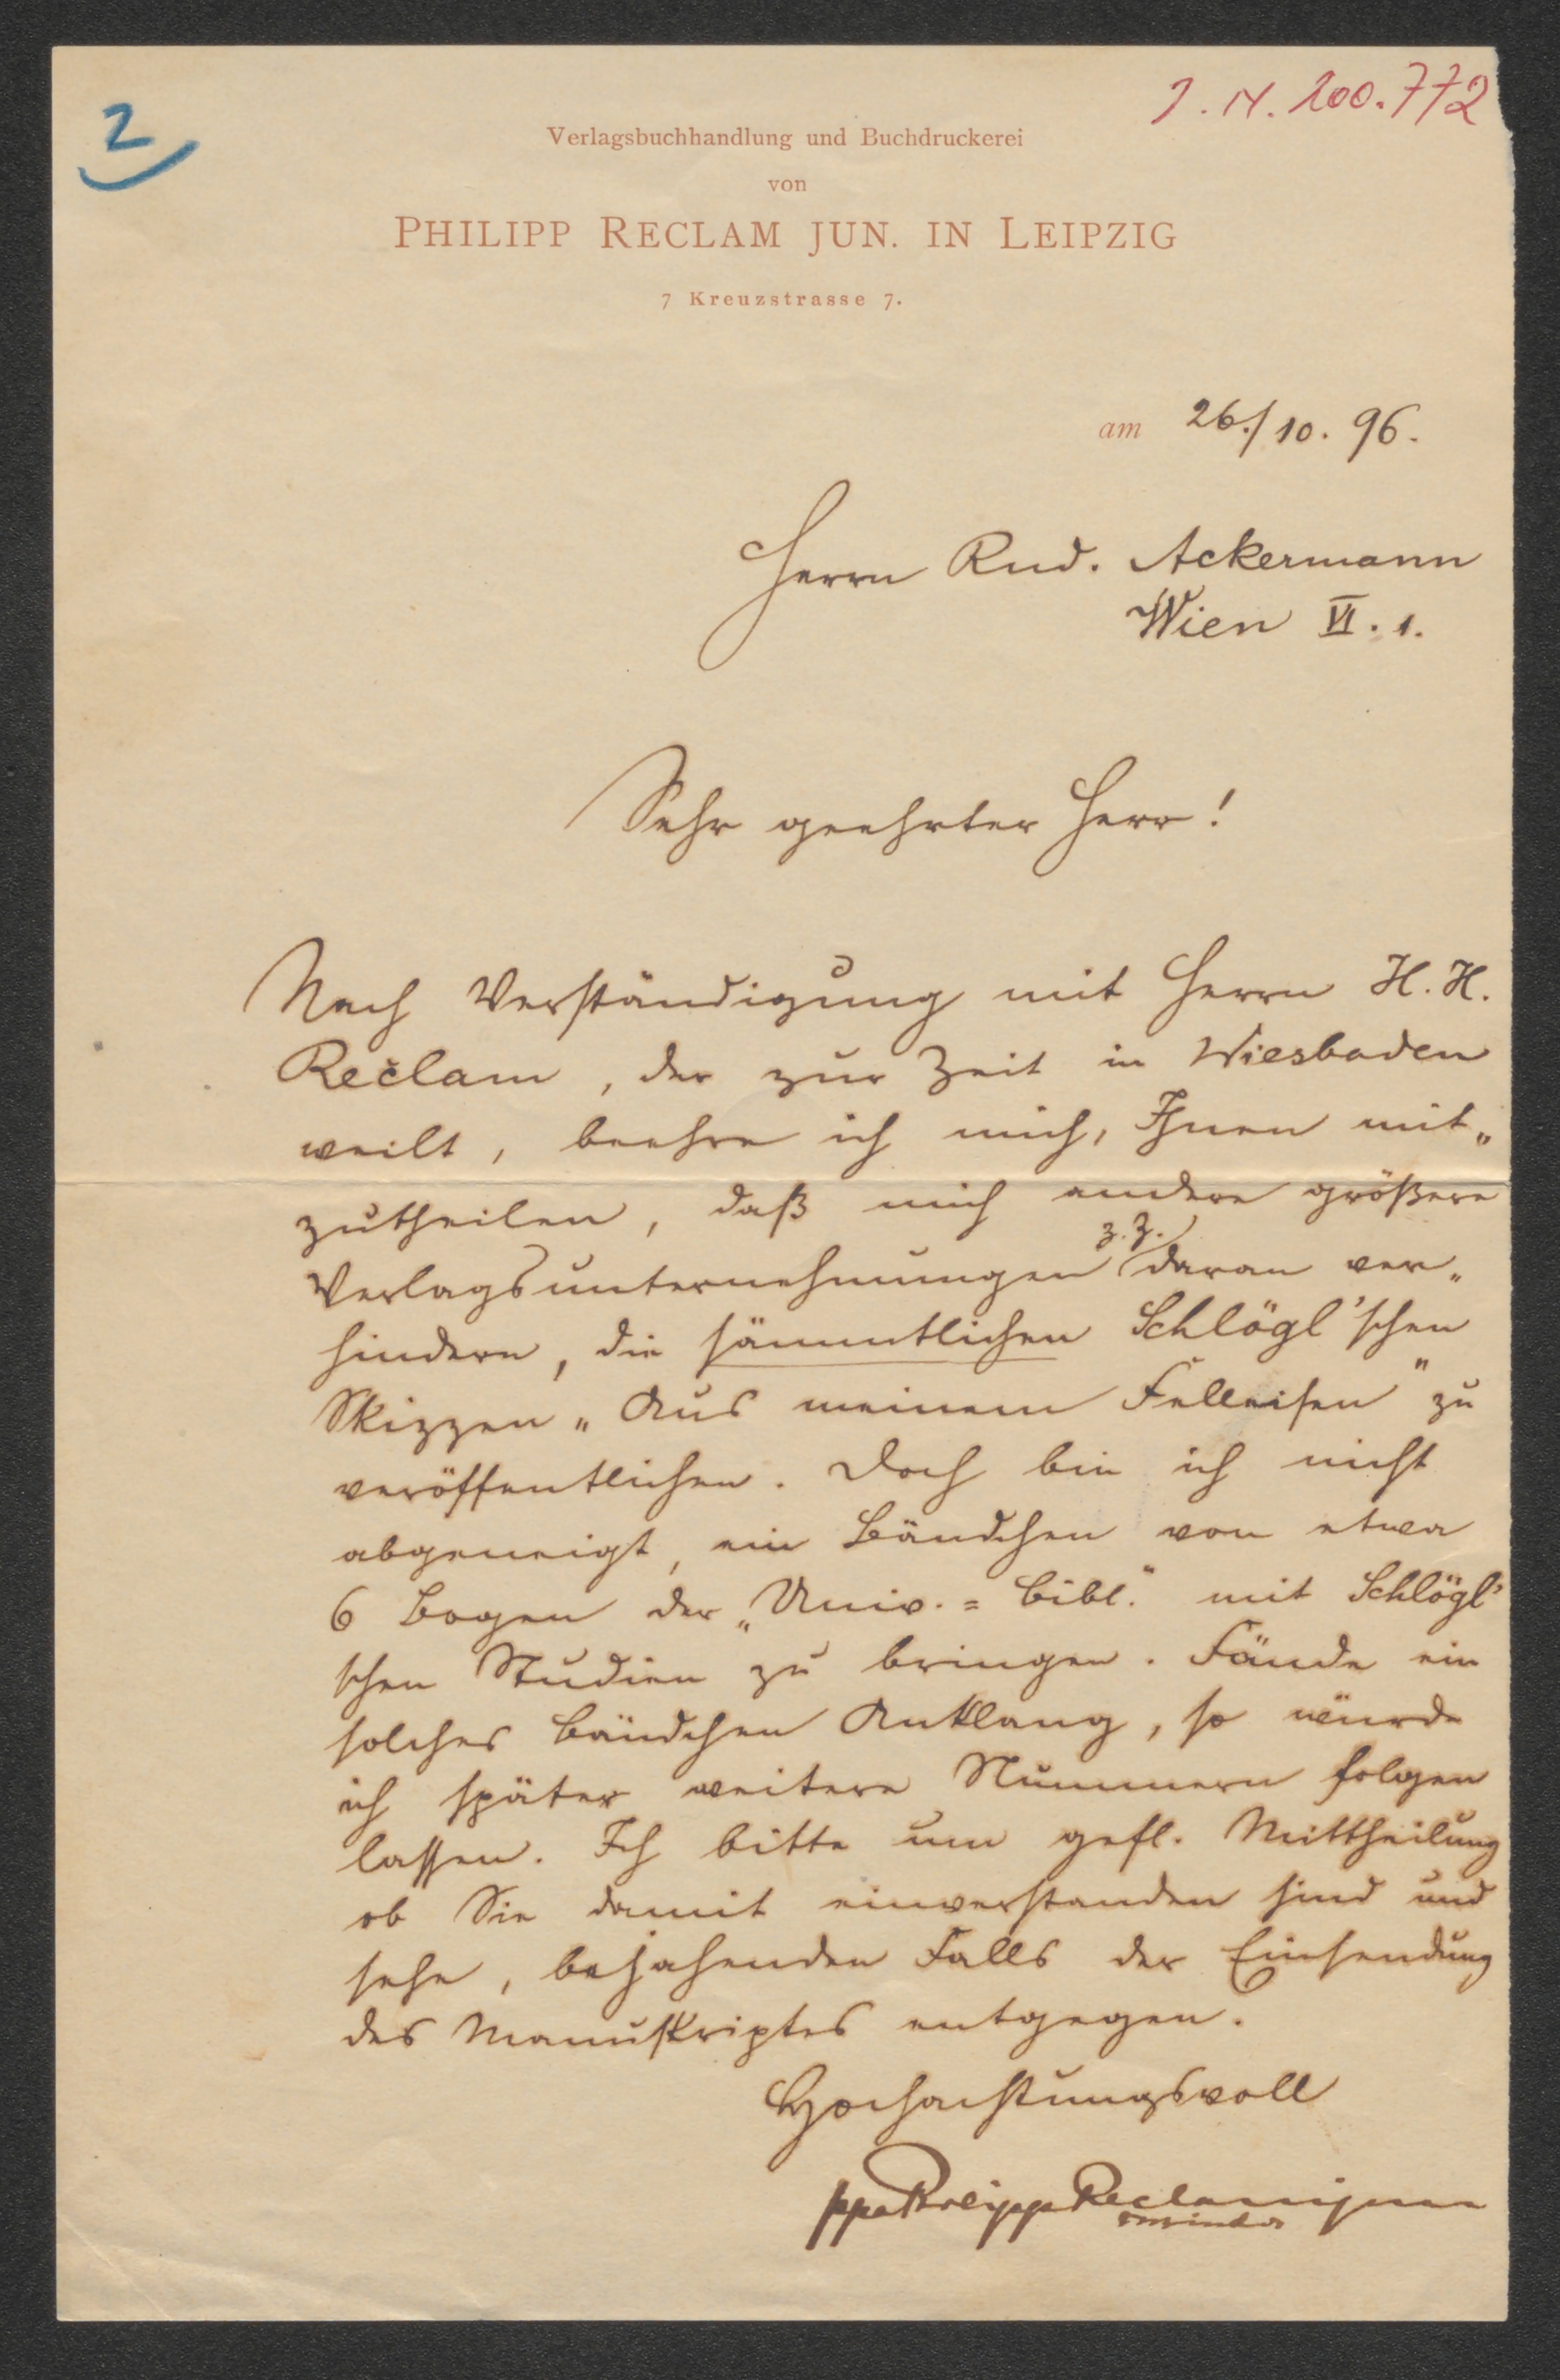 2
J. N. 200.772
Verlagsbuchhandlung und Buchdruckerei
von
PHILIPP RECLAM JUN. IN LEIPZIG
7 Kreuzstrasse 7.
am 26./10. 96.
Herrn Rud. Ackermann
Wien VI. 1.
Sehr geehrter Herr!
Nach Verständigung mit Herrn H. H.
Reclam, der zur Zeit in Wiesbaden
weilt, beehre ich mich, Ihnen mit„
zutheilen, daß mich andere größere
Verlagsunternehmungen z. Z. daran ver„
hindern, die sämmtlichen Schlögl'schen
Skizzen „Aus meinem Felleisen" zu
veröffentlichen. Doch bin ich nicht
abgeneigt, ein Bändchen von etwa
6 Bogen der „Univ.=Bibl." mit Schlögl'
schen Studien zu bringen. Fände ein
solches Bändchen Anklang, so würde
ich später weitere Nummern folgen
lassen. Ich bitte um gefl. Mittheilung
ob Sie damit einverstanden sind und
sehe, bejahenden Falls der Einsendung
des Manuskriptes entgegen.
Hochachtungsvoll
ppa Philipp Reclam jun